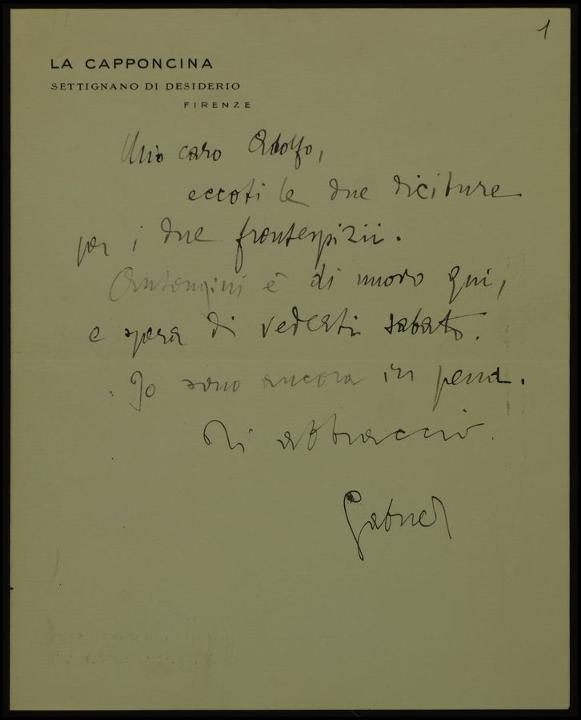 1
LA CAPPONCINA
SETTIGNANO DI DESIDERIO
FIRENZE
Mio caro Adolfo,
eccoti le due diciture
per i due frontespizii.
Antongini è di nuovo qui,
e spera di vederti sabato.
Io sono ancora in pena.
Ti abbraccio.
Gabriel